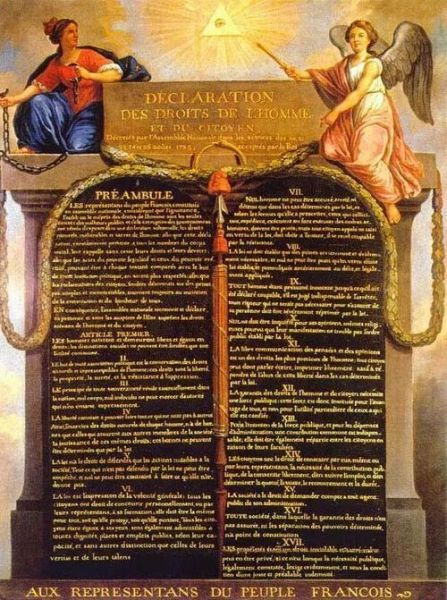 DÉCLARATION
DES DROITS DE L'HOMME
ET DU CITOYEN
Décrétés par l'Assemblée Nationale dans les séances des
acceptés par le Roi
PRÉAMBULE
LES représentans du peuple François constitués
en assemblée nationale, considérant que l'ignorance,
l'oubli ou le mépris des droits de l'homme sont les seules
causes des malheurs publics et de la corruption des gouvernemens
ont résolu d'exposer dans une déclaration solennelle, les droits
naturels, inaliénables et sacrés de l'homme; afin que cette décla-
ration, constamment présente a tous les membres du corps
social, leur rappelle sans cesse leurs droits et leurs devoirs;
afin que les actes du pouvoir législatif et ceux du pouvoir exé-
cutif, pouvant être a chaque instant comparés avec le but
de toute institution politique, en soient plus respectés; afin que
les réclamations des citoyens, fondées désormais sur des prin-
cipes simples et incontestables, tournent toujours au maintien
de la constitution et du bonheur de tous.
EN conséquence, l'assemblée nationale reconnoit et déclare,
en présence et sous les auspices de l'Être suprême les droits
suivans de l'homme et du citoyen.
ARTICLE PREMIER.
LES hommes naissent et demeurent libres et égaux en
droits; les distinctions sociales ne peuvent être fondées que sur
l'utilité commune.
II.
LE but de toute association politique est la conservation des droits
naturels et imprescriptibles de l'homme; ces droits sont la liberté,
la propriété, la sureté, et la résistance à l'oppression.
III.
LE principe de toute souveraineté réside essentiellement dans
la nation, nul corps, nul individu ne peut exercer d'autorité
qui n'en émane expressément.
IV.
LA liberté consiste a pouvoir faire tout ce qui ne nuit pas à autrui
Ainsi, l'exercice des droits naturels de chaque homme, n'a de bor-
nes que celles qui assurent aux autres membres de la société
la jouissance de ces mêmes droits; ces bornes ne peuvent
être déterminées que par la loi
V.
LA loi n'a le droit de défendre que les actions nuisibles a la
société. Tout ce qui n'est pas défendu par la loi ne peut être
empêché, et nul ne peut être contraint à faire ce qu'elle n'or-
donne pas.
VI.
LA loi est l'expression de la volonté générale; tous les
citoyens ont droit de concourir personnellement, ou par
leurs représentans, à sa formation; elle doit être la même
pour tous, soit qu'elle protege, soit qu'elle punisse. Tous les ci-
toyens étans égaux à ses yeux, sont également admissibles à
toutes dignités, places et emplois publics, selon leur ca-
pacité, et sans autres distinctions que celles de leurs
vertus et de leurs talens
VII.
NUL homme ne peut être accusé, arrêté, ni
détenu que dans les cas déterminés par la loi, et
selon les formes qu'elle a prescrites. ceux qui sollici-
tent, expédient, exécutent ou font exécuter des ordres ar-
bitraires, doivent être punis; mais tout citoyen appelé ou saisi
en vertu de la loi, doit obéir a l'instant, il se rend coupable
par la résistance.
VIII.
LA loi ne doit établir que des peines strictement et évidem-
ment nécessaires, et nul ne peut être puni qu'en vertu d'une
loi établie, et promulguée antérieurement au délit, et légale-
ment appliquée.
IX.
TOUT homme étant présumé innocent jusqu'à ce qu'il ait
été déclaré coupable, s'il est jugé indispensable de l'arrêter,
toute rigueur qui ne serait pas nécessaire pour s'assurer de
sa personne doit être sévèrement réprimée par la loi.
X.
NUL ne doit être inquiété pour ses opinions, mêmes religi-
euses pourvu que leur manifestation ne trouble pas l'ordre
public établi par la loi.
XI.
LA libre communication des pensées et des opinions
est un des droits les plus précieux de l'homme; tout citoyen
peut donc parler, écrire, imprimer librement: sauf à ré-
pondre de l'abus de cette liberté dans les cas déterminés
par la loi.
XII.
LA garantie des droits de l'homme et du citoyen nécessite
une force publique; cette force est donc instituée pour l'avan-
tage de tous, et non pour l'utilité particuliere de ceux a qui
elle est confiée.
XIII.
POUR l'entretien de la force publique, et pour les dépenses
d'administration, une contribution commune est indispen-
sable; elle doit être également répartie entre les citoyens en
raison de leurs facultés.
XIV.
LES citoyens ont le droit de constater par eux même ou
par leurs représentans, la nécessité de la contribution pu-
blique, de la consentir librement, d'en suivre l'emploi, et d'en
déterminer la quotité, l'assiette, le recouvrement et la durée.
XV.
LA société a le droit de demander compte a tout agent
public de son administration.
XVI.
TOUTE société, dans laquelle la garantie des droits n'est
pas assurée, ni les séparation des pouvoirs déterminée,
n'a point de constitution.
XVII.
LES propriétés étant un droit inviolable et sacré, nul ne
peut en être privé, si ce n'est lorsque la nécessité publique,
légalement constatée, l'exige évidemment, et sous la condi-
tion d'une juste et préalable indemnité.
AUX REPRESENTANS DU PEUPLE FRANCOIS